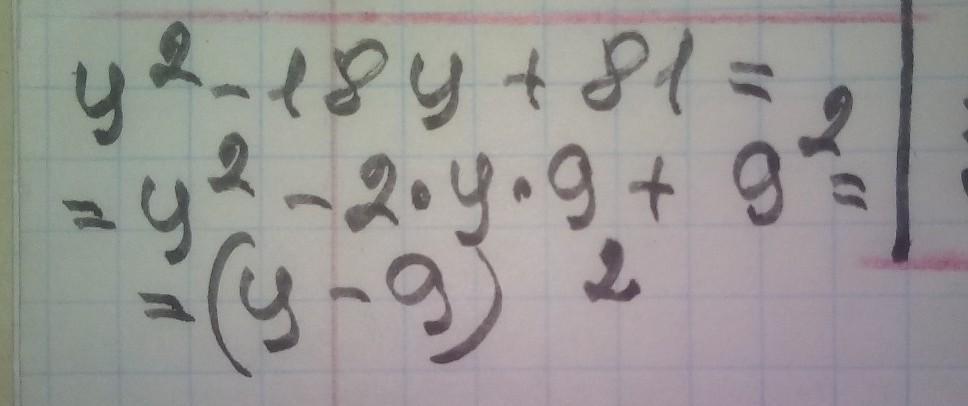 y² - 18y + 81 =
= y² - 2 · y · 9 + 9² =
= (y - 9) ²